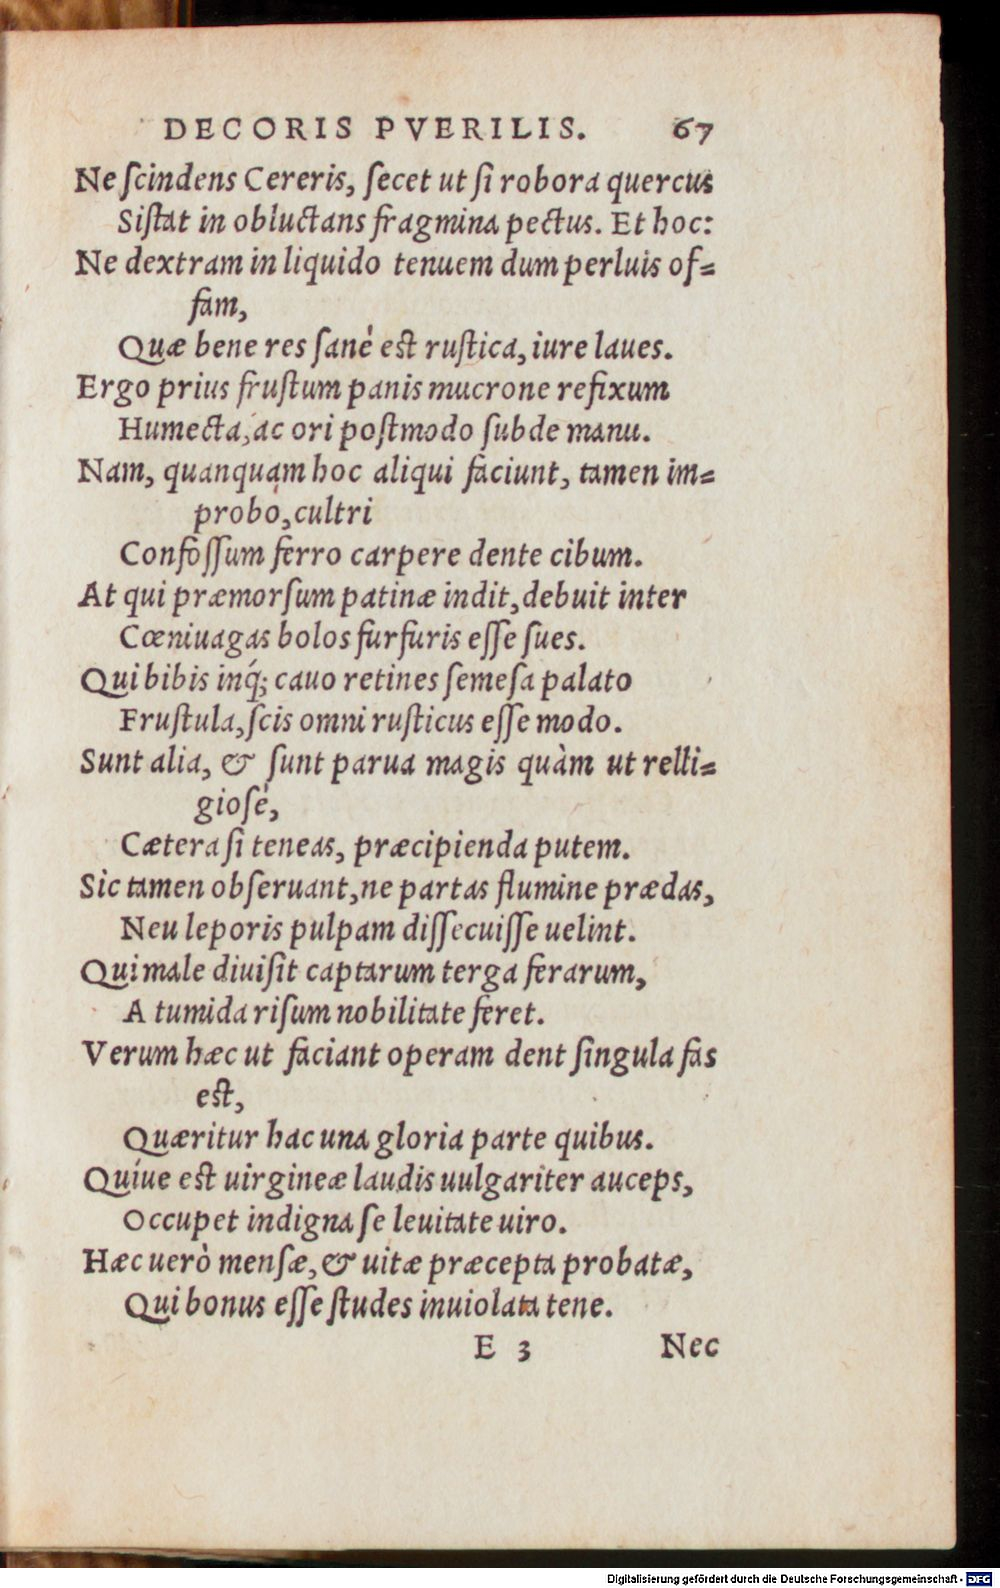 DECORIS PVERILIS. 67
Ne ſcindens Cereris, ſecet ut ſi robora quercus
Siſtat in obluctans fragmina pectus. Et hoc:
Ne dextram in liquido tenuem dum perluis of=
fam,
Quæ bene res ſanè est ruſtica, iure laues.
Ergo prius fruſtum panis mucrone refixum
Humecta, ac ori poſtmodo ſubde manu.
Nam, quanquam hoc aliqui faciunt, tamen im=
probo, cultri
Confoſſum ferro carpere dente cibum.
At qui præmorſum patinæ indit, debuit inter
Cœniuagas bolos furfuris eſſe ſues.
Qui bibis inq́; cauo retines ſemeſa palato
Fruſtula, ſcis omni ruſticus eſſe modo.
Sunt alia, & ſunt parua magis quàm ut relli=
gioſè,
Cætera ſi teneas, præcipienda putem.
Sic tamen obſeruant, ne partas flumine prædas,
Neu leporis pulpam diſſecuiſſe uelint.
Qui male diuiſit captarum terga ferarum,
A tumida riſum nobilitate feret.
Verum hæc ut faciant operam dent ſingula fas
est,
Quæritur hac una gloria parte quibus.
Quíue est uirgineæ laudis uulgariter auceps,
Occupet indigna ſe leuitate uiro.
Hæc uerò menſæ, & uitæ præcepta probatæ,
Qui bonus eſſe ſtudes inuiolata tene.
E 3 Nec
Digitalisierung gefördert durch die Deutsche Forschungsgemeinschaft - DFG